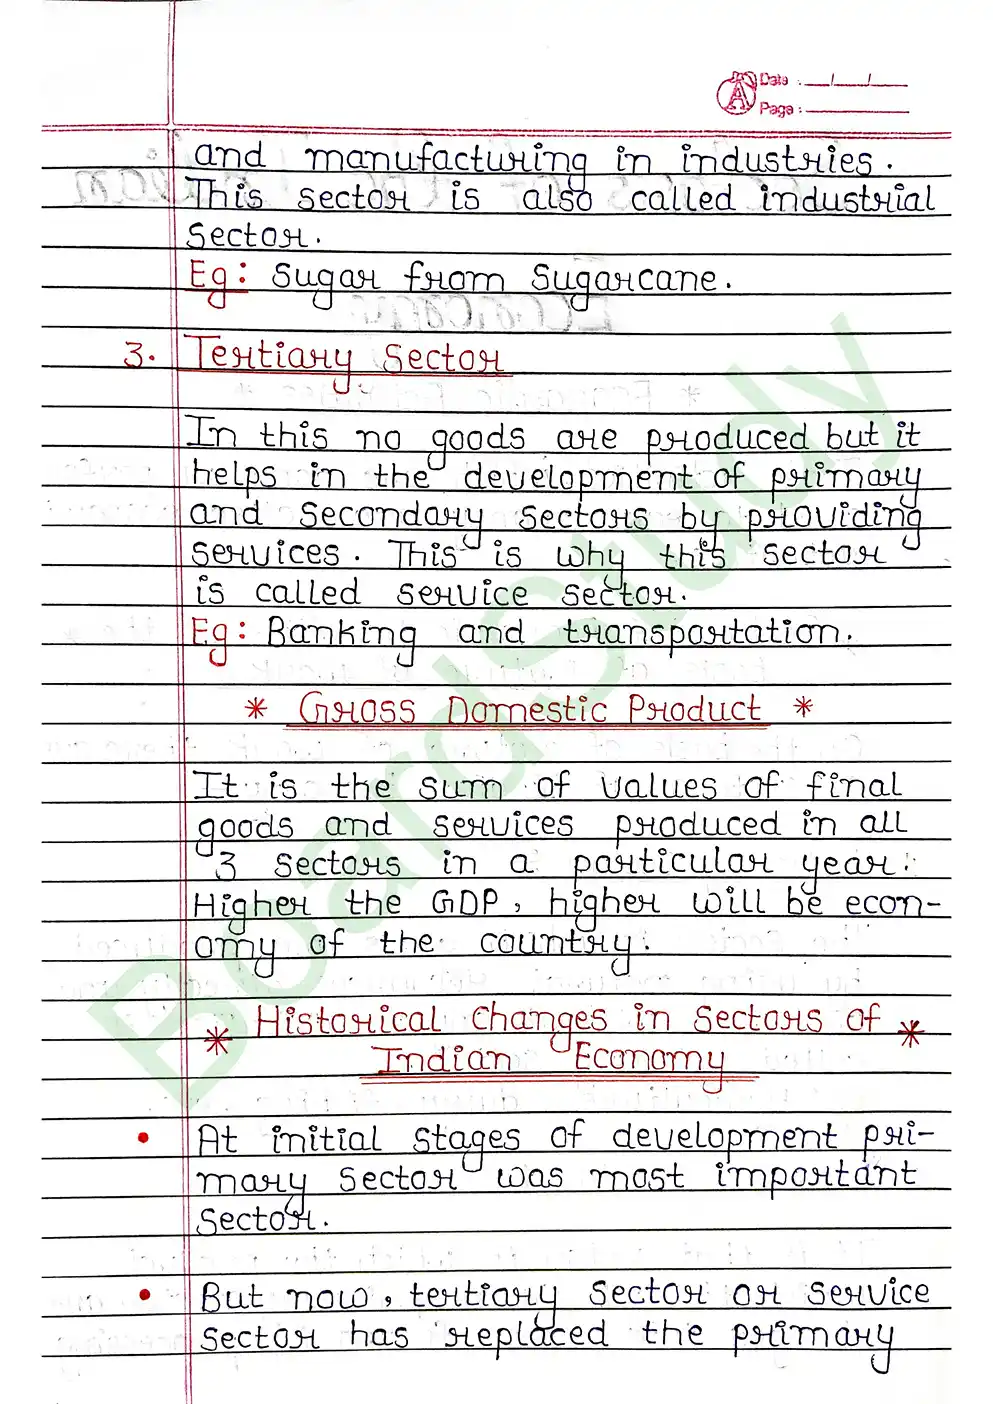 Date : __/__/__
Page :
and manufacturing in industries.
This sector is also called industrial
sector.
Eg: Sugar from Sugarcane.
3. Tertiary Sector
In this no goods are produced but it
helps in the development of primary
and secondary sectors by providing
services. This is why this sector
is called service sector.
Eg: Banking and transportation.
* Gross Domestic Product *
It is the sum of values of final
goods and services produced in all
3 sectors in a particular year.
Higher the GDP, higher will be econ-
omy of the country.
* Historical Changes in Sectors of *
Indian Economy
• At initial stages of development pri-
mary sector was most important
sector.
• But now, tertiary sector or service
sector has replaced the primary
BoardStudy